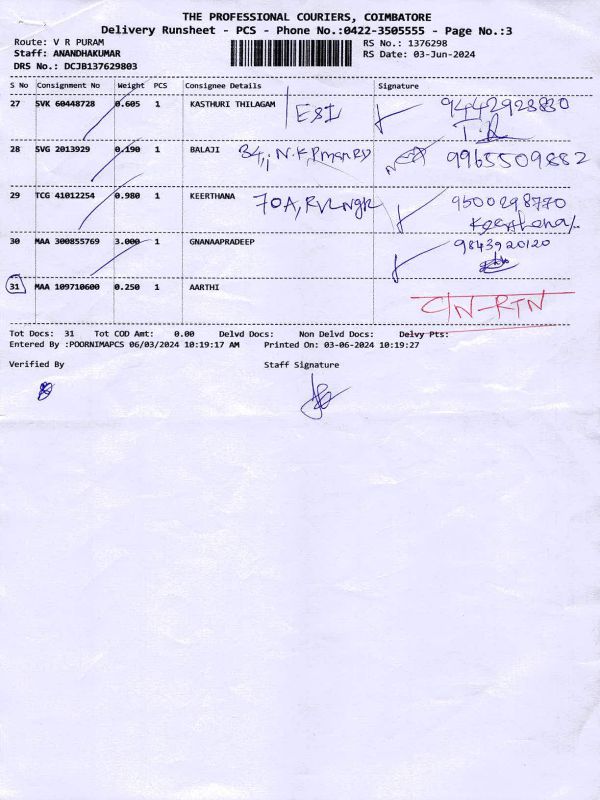 THE PROFESSIONAL COURIERS, COIMBATORE
Delivery Runsheet - PCS - Phone No.:0422-3505555 - Page No.:3
Route: V R PURAM RS No.: 1376298
Staff: ANANDHAKUMAR RS Date: 03-Jun-2024
DRS No.: DCJB137629803
S No Consignment No Weight PCS Consignee Details Signature
27 SVK 60448728 0.605 1 KASTHURI THILAGAM ESI 9442928830
28 SVG 2013929 0.190 1 BALAJI 34, N.K. 9965509882
29 TCG 41012254 0.980 1 KEERTHANA 70A, RVLNgR 9500298770
Keerthana
30 MAA 300855769 3.000 1 GNANAAPRADEEP 9843920120
31 MAA 109710600 0.250 1 AARTHI C/N-RTN
Tot Docs: 31 Tot COD Amt: 0.00 Delvd Docs: Non Delvd Docs: Delvy Pts:
Entered By :POORNIMAPCS 06/03/2024 10:19:17 AM Printed On: 03-06-2024 10:19:27
Verified By Staff Signature